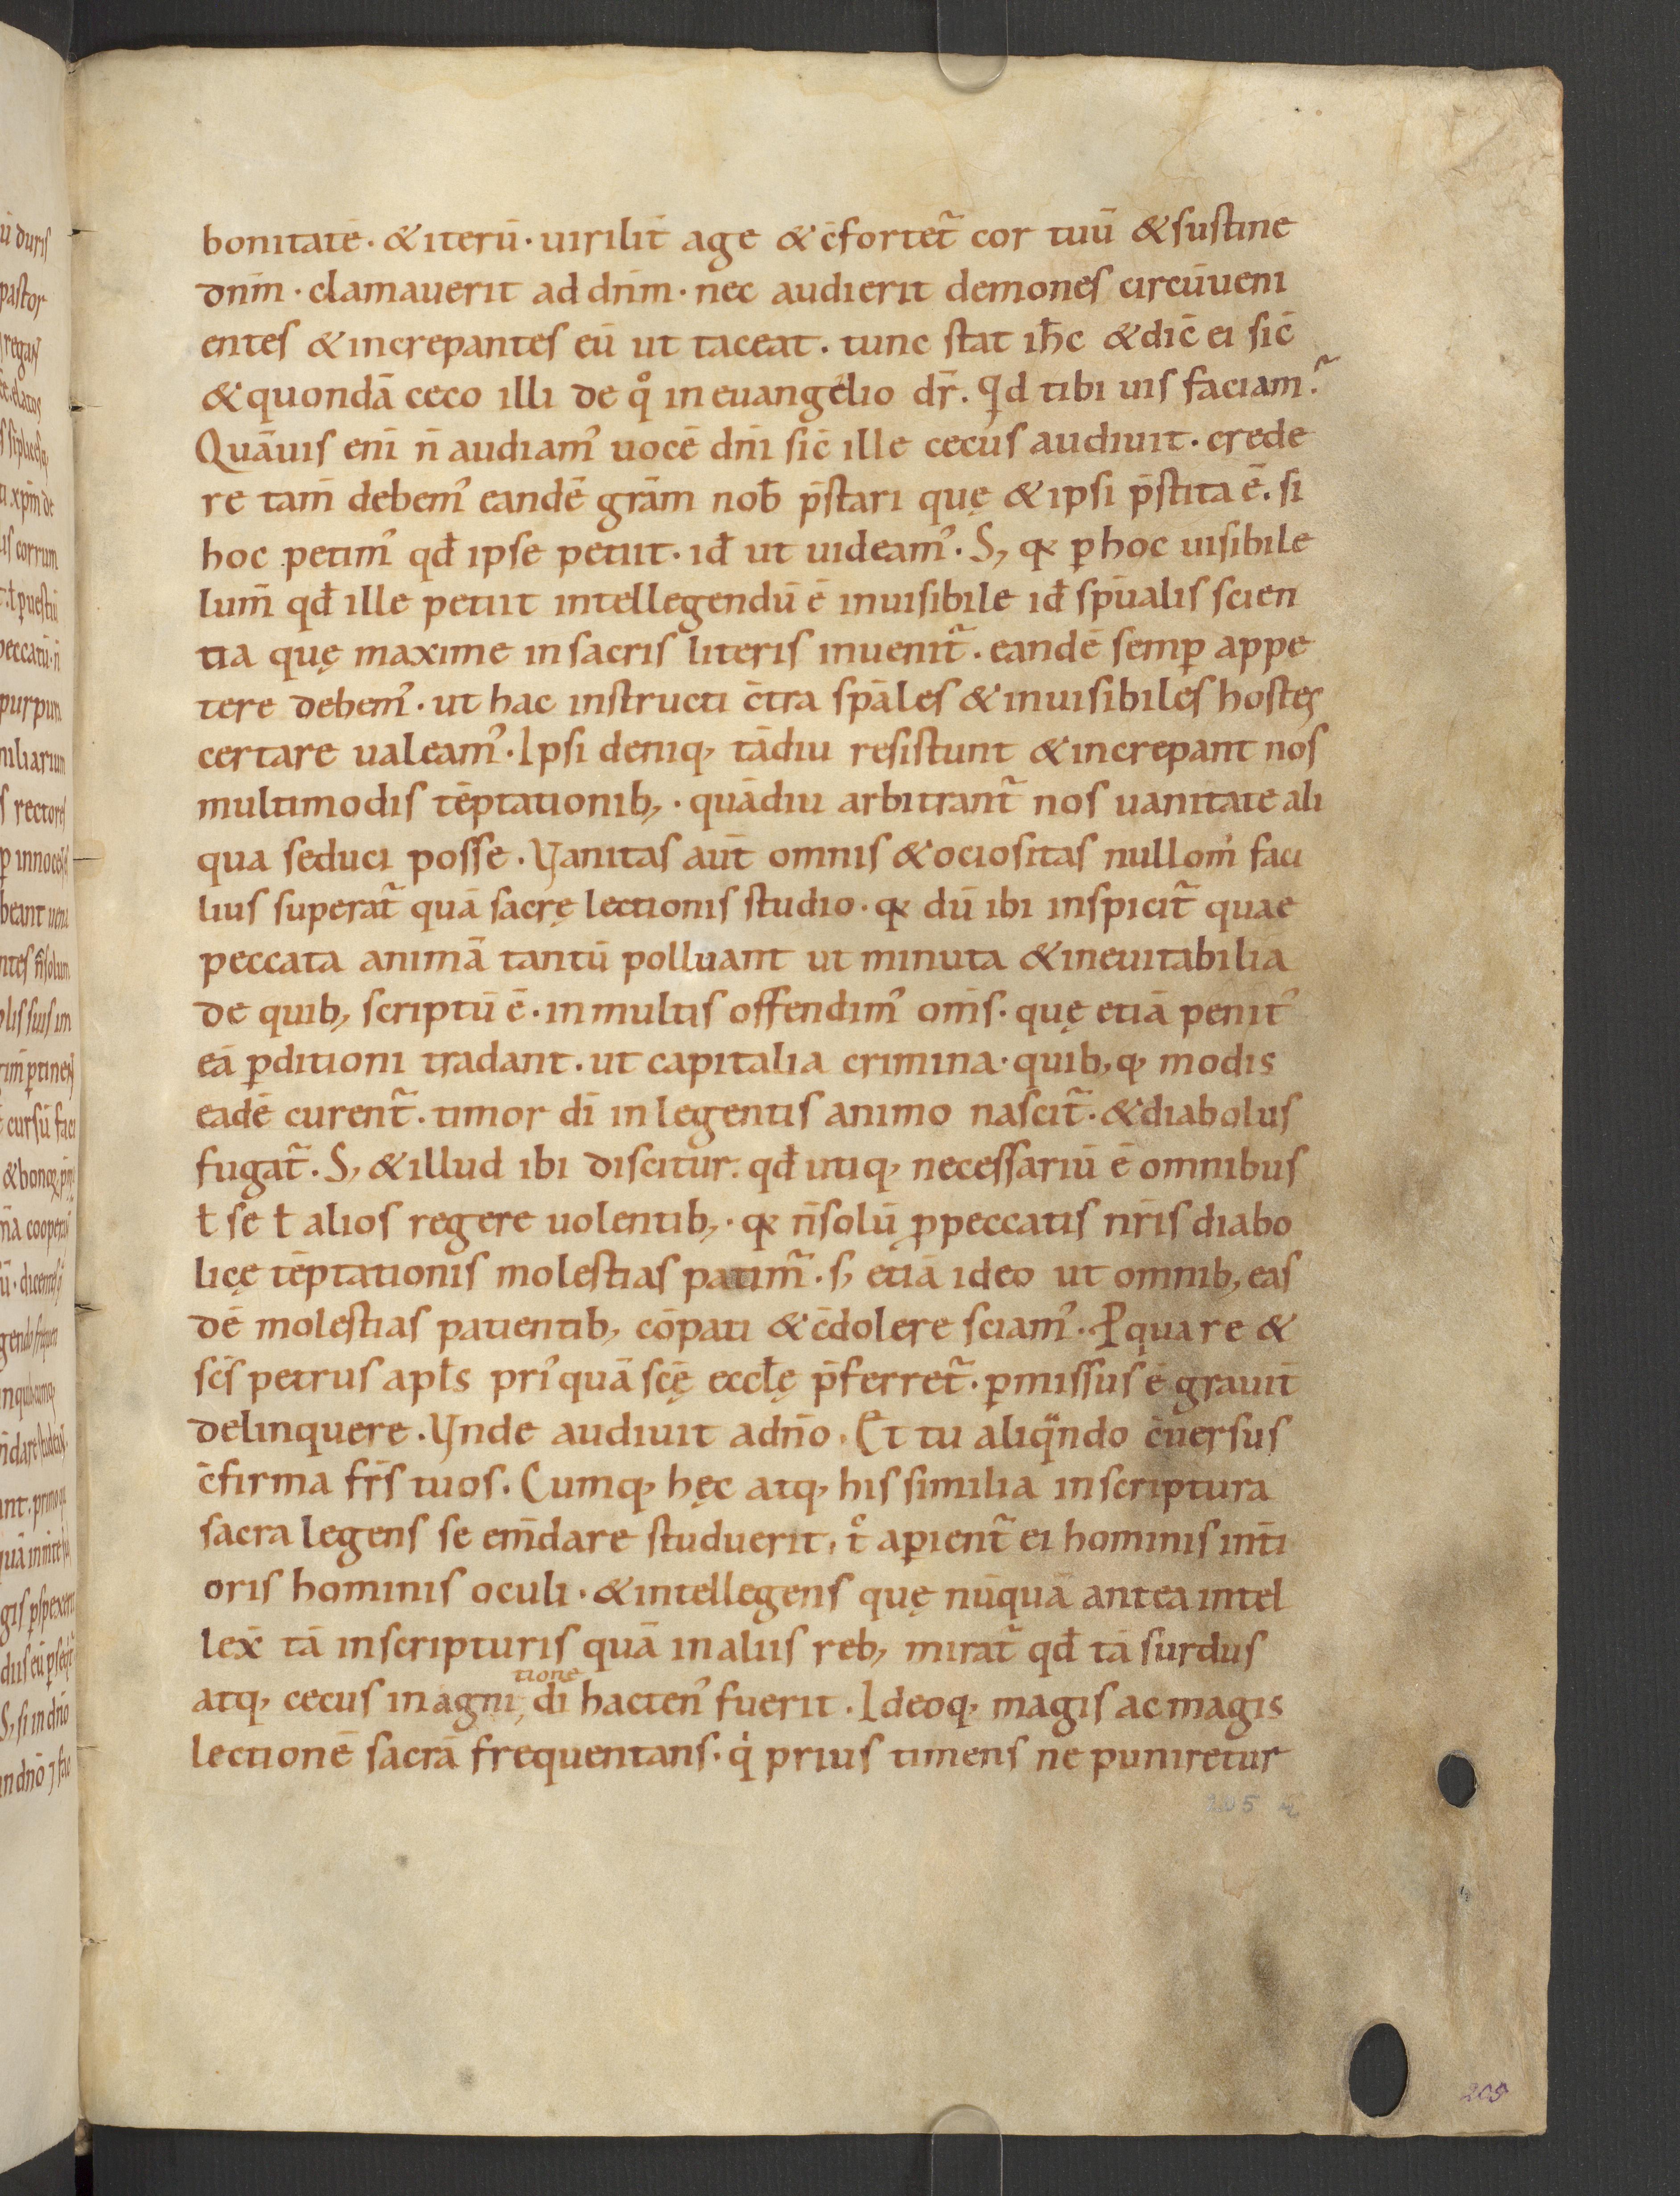 bonitatē · & iterū · uirilit̄ age & c̄fortet̃ cor tuū & sustine
dnm̄ · clamauerit ad dnm̄ · nec audierit demones circūueni
entes & increpantes eū ut taceat . tunc stat ih̄c & dic̄ ei sic̄
& quondā ceco illi de qͦ in euangelio dr̄ . Qd tibi uis faciam ?
Quāuis enī n̄ audiam᾽ uocē dnī sic̄ ille cecus audiuit · crede
re tam̄ debem᾽ eandē grām nob̄ p̄stari quę & ipsi p̄stita ē . si
hoc petim᾽ qđ ipse petiit · iđ ut uideam᾽ . S; qꝛ ꝑ hoc uisibile
lum̄ qđ ille petiit intellegendū ē inuisibile iđ spūalis scien
tia quę maxime in sacris literis inuenit̃ . eandē semꝑ appe
tere debem᾽ · ut hac instructi c̄tra spāles & inuisibiles hostes
certare ualeam᾽ . Ipsi deniq; tādiu resistunt & increpant nos
multimodis tēptationib; · quādiu arbitrant̃ nos uanitate ali
qua seduci posse . Vanitas aut̄ omnis & ociositas nullom̄ faci
lius superat̃ quā sacrę lectionis studio · qꝛ dū ibi inspicit̃ quae
peccata animā tantū polluant ut minuta & ineuitabilia
de quib; scriptū ē · in multis offendim᾽ om̄s · quę etiā penit᾽
eā ꝑditioni tradant . ut capitalia crimina · quib; q; modis
eadē curent̃ . timor dī in legentis animo nascit̃ . & diabolus
fugat̃ . S; & illud ibi discitur . qđ utiq; necessariū ē omnibus
ł se ł alios regere uolentib; · qꝛ n̄ solū ꝓ peccatis nr̄is diabo
licę tēptationis molestias patim̃ . s; etiā ideo ut omnib; eas
dē molestias patientib; cōpati & c̄dolere sciam᾽ . P quare &
scs̄ petrus apłs pri᾽ quā scę̄ eccłę p̄ferret̃ · ꝑmissus ē grauit̄
delinquere . Vnde audiuit a dnō . Et tu aliqando c̄uersus
c̄firma frs̄ tuos . Cumq; hęc atq; his similia in scriptura
sacra legens se em̄dare studuerit , tͦ apient̃ ei hominis int̄i
oris hominis oculi · & intellegens quę nūquā antea intel
lex̄ tā in scripturis quā in aliis reb; mirat̃ qđ tā surdus
atq; cecus in agni, tione dī hacten᾽ fuerit . Ideoq; magis ac magis
lectionē sacrā frequentans · q̇ prius timens ne puniretur
205 r
209